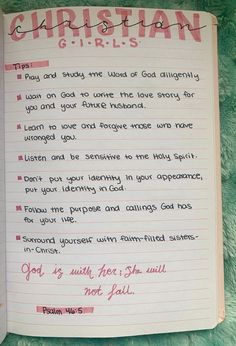 CHRISTIAN
christian
G·I·R·L·S
Tips:
Pray and study the Word of God diligently.
Wait on God to write the love story for
you and your future husband.
Learn to love and forgive those who have
wronged you.
Listen and be sensitive to the Holy Spirit.
Don't put your identity in your appearance,
put your identity in God.
Follow the purpose and callings God has
for your life.
Surround yourself with faith-filled sisters-
in-Christ.
God is with her; She will
not fall.
Psalm 46:5